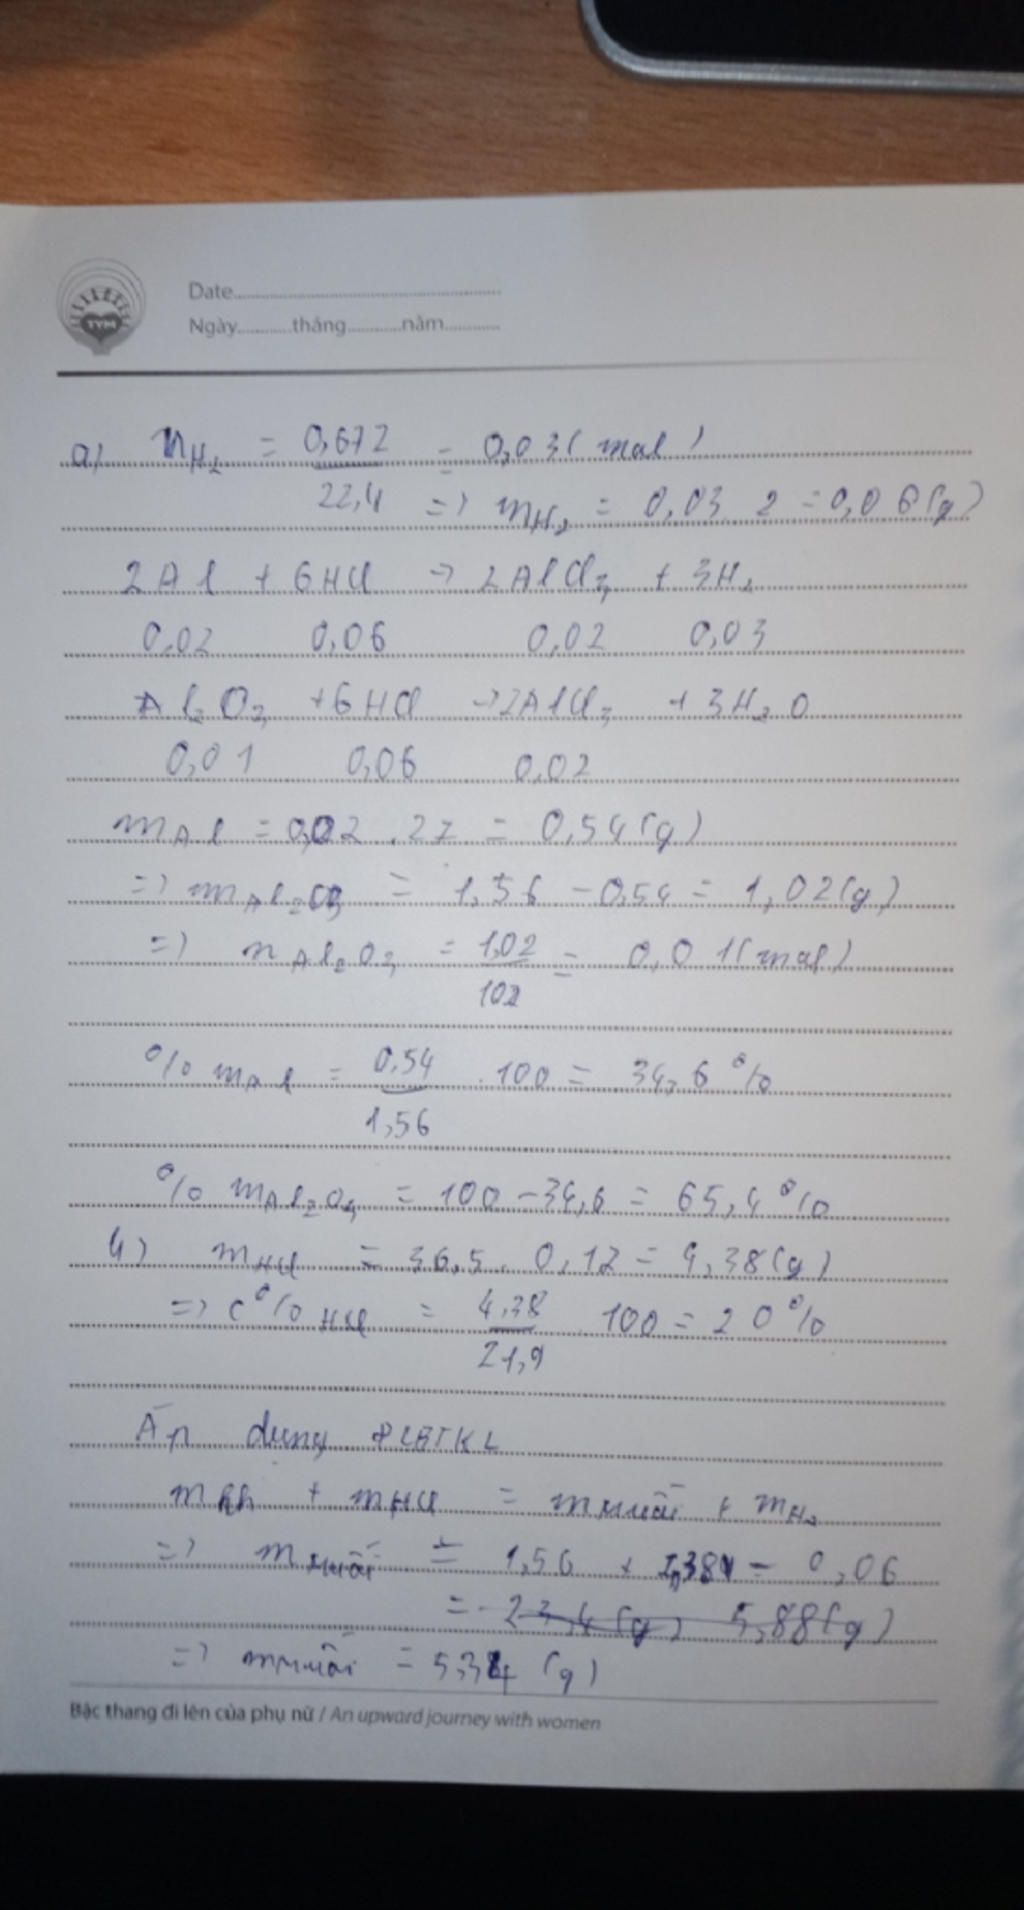 TYM
Date
Ngày tháng năm
a) nH2 = 0,672 / 22,4 = 0,03 (mol)
=> mH2 = 0,03 . 2 = 0,06(g)
2Al + 6HCl -> 2AlCl3 + 3H2
0,02 0,06 0,02 0,03
Al2O3 + 6HCl -> 2AlCl3 + 3H2O
0,01 0,06 0,02
mAl = 0,02 . 27 = 0,54(g)
=> mAl2O3 = 1,56 - 0,54 = 1,02(g)
=> nAl2O3 = 1,02 / 102 = 0,01(mol)
% mAl = 0,54 / 1,56 . 100 = 34,6 %
% mAl2O3 = 100 - 34,6 = 65,4 %
mHCl = 36,5 . 0,12 = 4,38(g)
=> C% HCl = 4,38 / 21,9 . 100 = 20 %
Áp dụng ĐLBTKL
+ mHCl = mmuối + mH2
=> mmuối = 1,56 + - 0,06
= 23,4(g) 5,88(g)
=> mmuối = 5,34 (g)
Bậc thang đi lên của phụ nữ / An upward journey with women